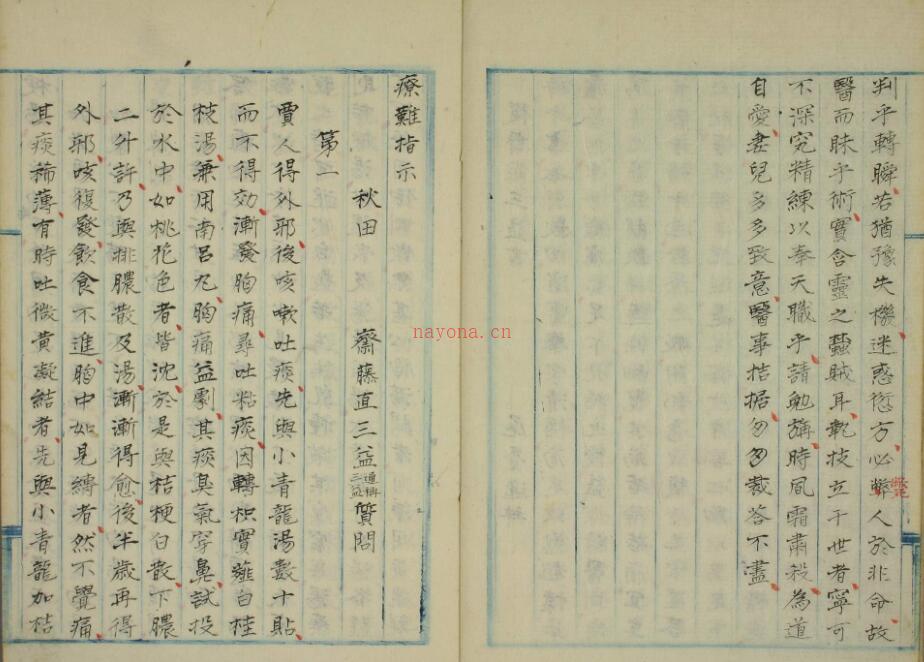 判乎轉瞬若猶豫失機迷惑愆方必斃人於非命故
醫而昧乎術實含靈之蝨賊耳執技立于世者寧可
不深究精練以奉天職乎請勉旃時風霜肅殺為道
自愛妻兒多多致意醫事拮据匆匆裁答不盡
療難指示
第一
秋田 齋藤直三益通稱三益質問
賈人得外邪後咳嗽吐痰先與小青龍湯數十貼
而不得効漸發胸痛尋吐粘痰因轉枳實薤白桂
枝湯兼用南呂丸胸痛益劇其痰臭氣穿鼻試投
於水中如桃花色者皆沈於是與桔梗白散下膿
二升許乃與排膿散及湯漸漸得愈後半歲再得
外邪咳復發飲食不進胸中如見縛者然不覺痛
其痰稀薄有時吐微黄凝結者先與小青龍加桔
nayona.cn